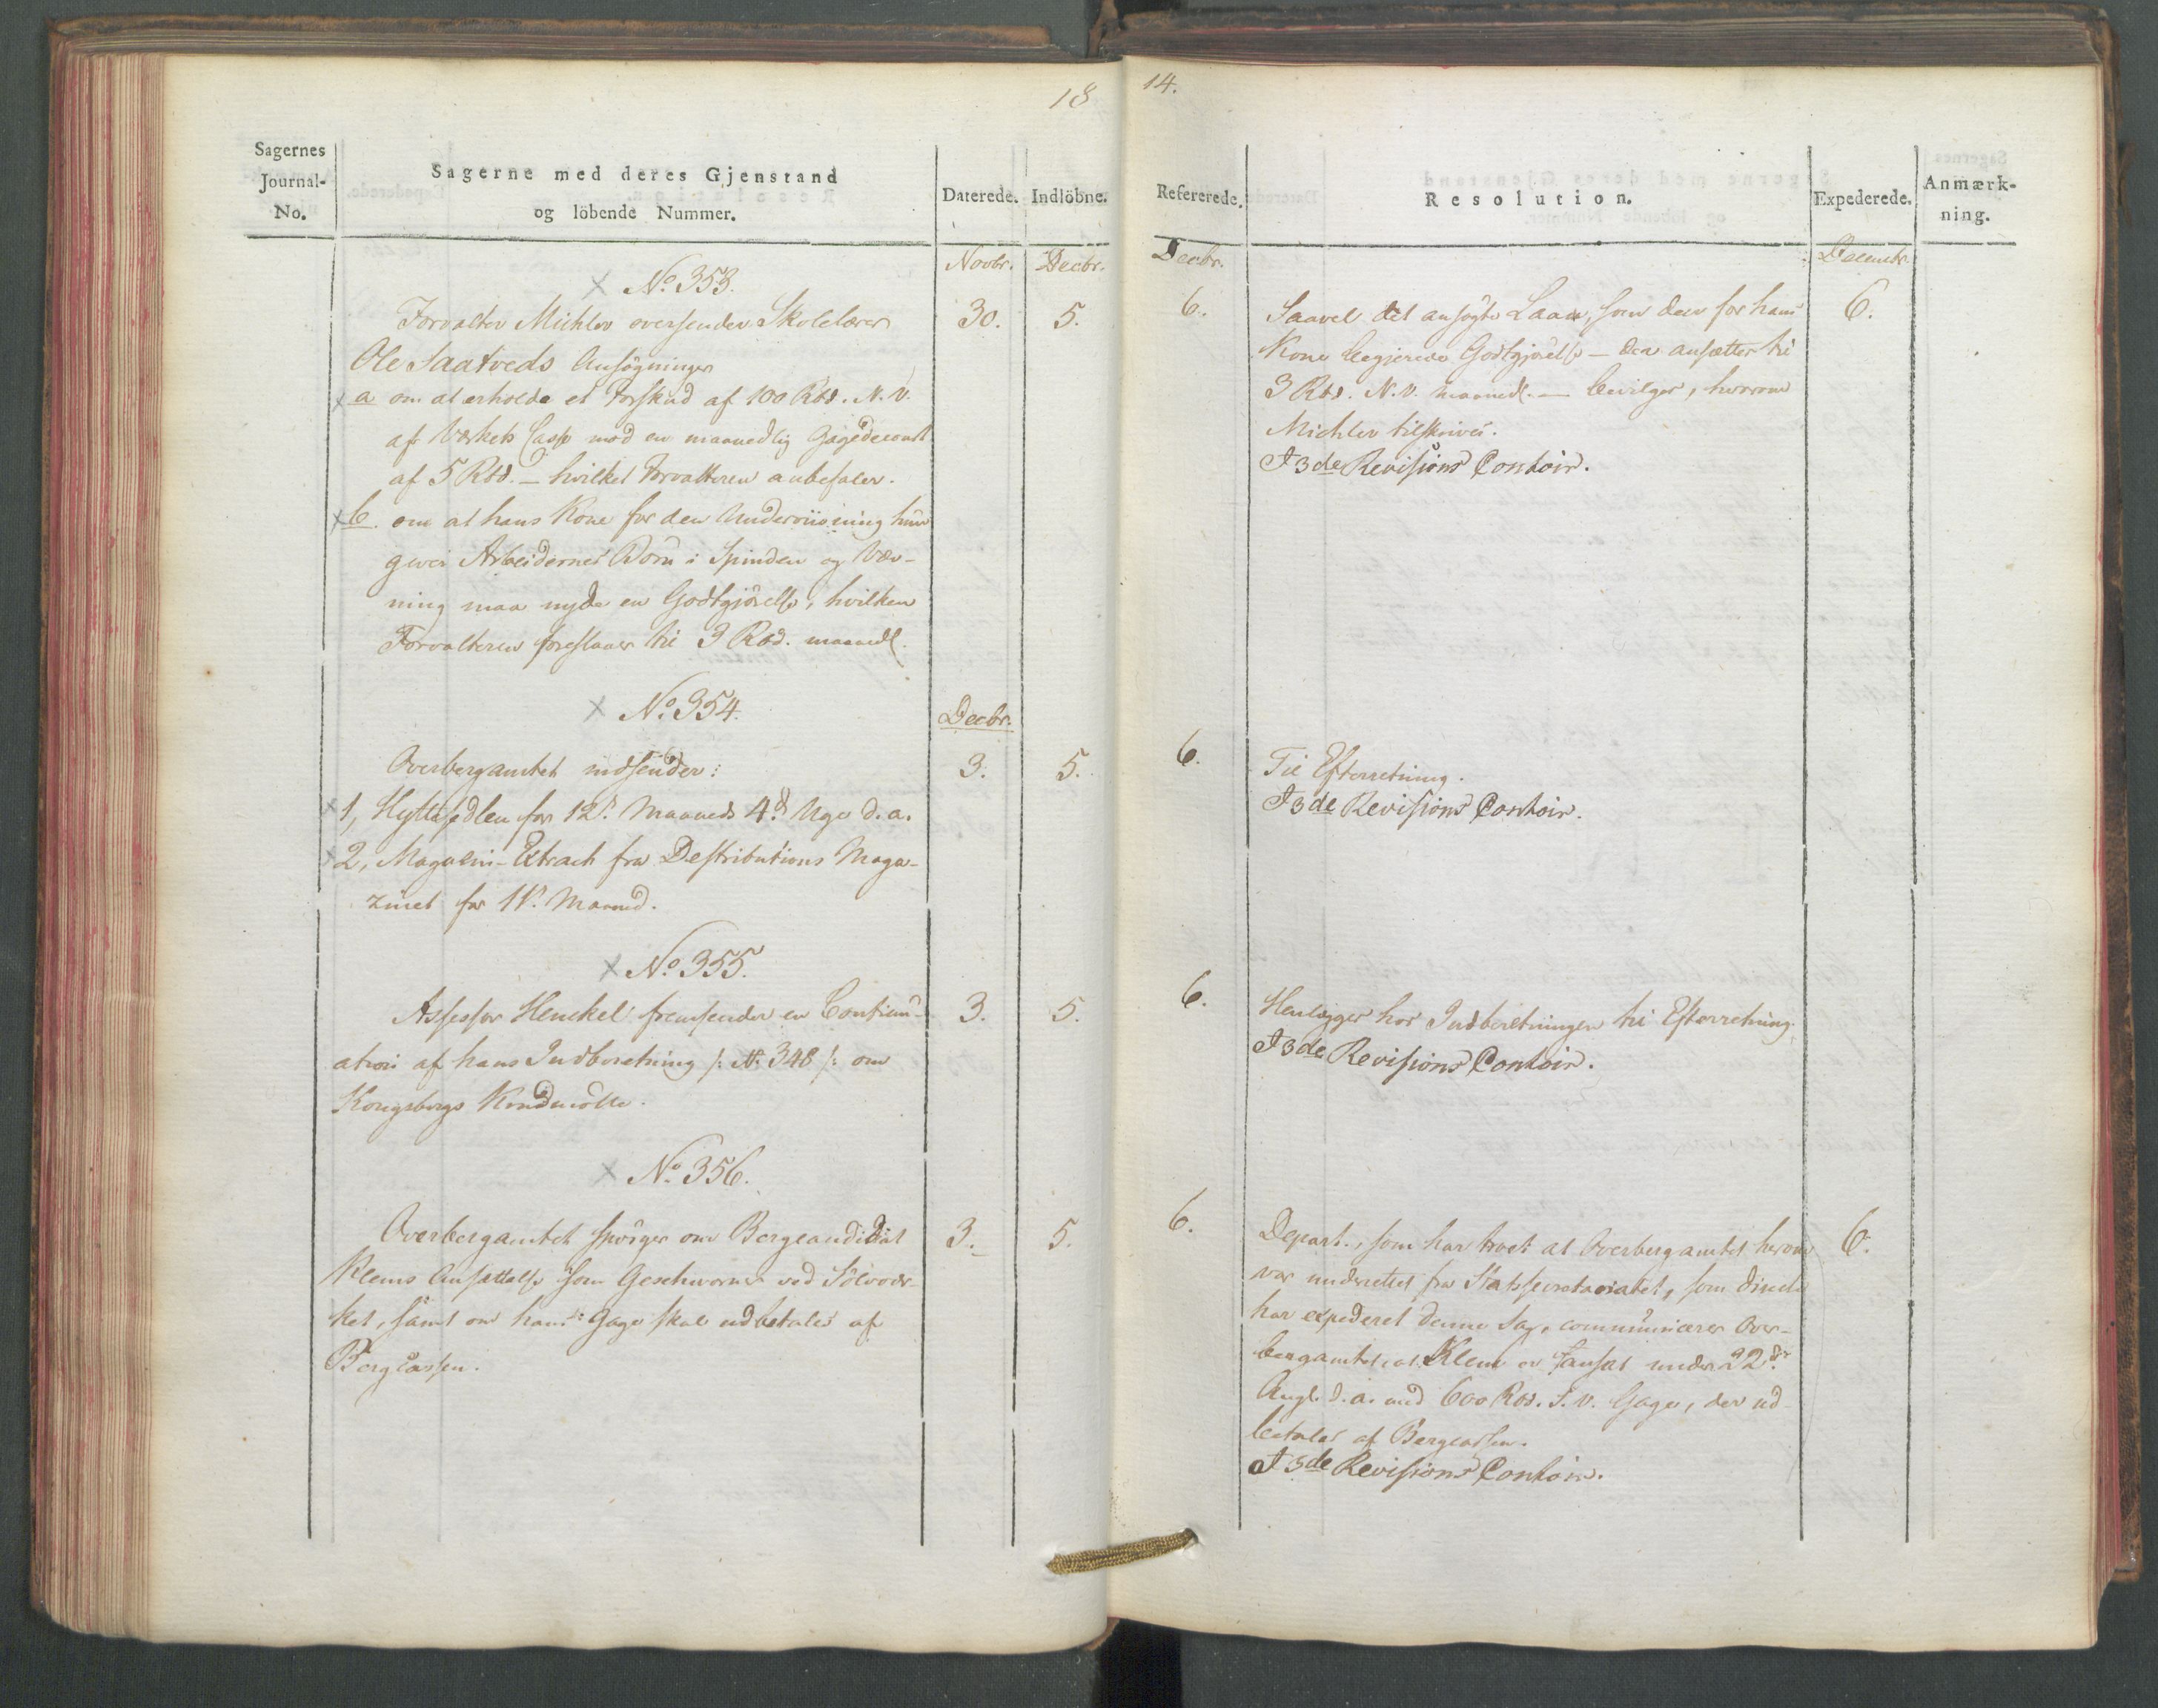 18
14.
Sagernes
Journal-
No.
Sagerne med deres Gjenstand
og löbende Nummer.
Daterede.
Indlöbne.
Refererede.
Resolution.
Expederede.
Anmærk-
ning.
Novbr.
Decbr.
Decbr.
Decembr.
No. 353.
Forvalter Michler oversender Skolelærer
Ole Saatveds Ansøgninger
a om at erholde et Forskud af 100 Rbd. N. V.
af Værkets Casse mod en maanedlig Gagedecourt
af 5 Rbd. — hvilket Forvalteren anbefaler.
b. om at hans Kone for den Underviisning hun
giver Arbeidernes Børn i Spinden og Væv-
ning maa nyde en Godtgjørelse, hvilken
Forvalteren foreslaaer til 3 Rbd. maanedl.
30.
5.
6.
Saavel det ansøgte Laan, som den for hans
Kone begjerede Godtgjørelse — der ansættes til
3 Rbd. N. V. maanedl. — bevilges, hvorom
Michler tilskrives.
I 3de Revisions Contoir.
6.
No. 354.
Decbr.
Overbergamtet indsender:
1, Hyttesedlen for 12te Maaneds 4de Uge d. a.
2, Magazin-Extract fra Destributions Maga-
zinet for 11te Maaned.
3.
5.
6.
Til Efterretning.
I 3de Revisions Contoir.
No. 355.
Assessor Henckel fremsender en Continu-
ation af hans Indberetning /: No. 348 :/ om
Kongsbergs Krudmølle.
3.
5.
6.
Henlægges hos Indberetningen til Efterretning.
I 3de Revisions Contoir.
No. 356.
Overbergamtet spørger om Bergcandidat
Klems Ansættelse som Geschworner ved Sølvvær-
ket, samt om hans Gage skal udbetales af
Bergcassen.
3.
5.
6.
Depart., som har troet at Overbergamtet herom
var underrettet fra Statssecretariatet, som directe
har expederet denne Sag, communicerer Over-
bergamtet, at Klem er ansat under 22de
Aug. d. a. med 600 Rbd. S. V. Gage, der ud-
betales af Bergcassen.
I 3de Revisions Contoir.
6.